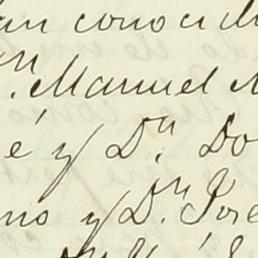 an conocidi
n. Manuel M
é y Dn. Do
no y Dn. José